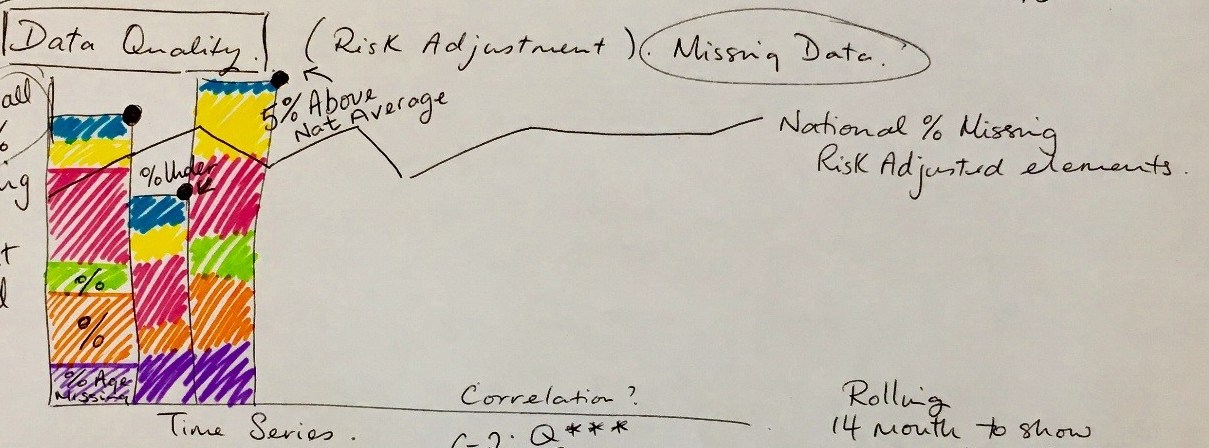 Data Quality. (Risk Adjustment). Missing Data?
all
%
ng
t
5% Above
Nat Average
% Under
National % Missing
Risk Adjusted elements.
%
%
% Age
Missing
Time Series.
Correlation?
Q***
Rolling
14 month to show